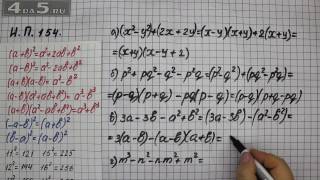 4DS.RU
И.П. 154.
(a+b)²=a²+2ab+b²
(a-b)²=a²-2ab+b²
(a+b)(a-b)=a²-b²
(a-b)(a²+ab+b²)=a³-b³
(a+b)(a²-ab+b²)=a³+b³
(-a-b)²=(a+b)²
(b-a)²=(a-b)²
11²=121 15²=225
12²=144
а) (x²-y²)+(2x+2y)=(x-y)(x+y)+2(x+y)=
=(x+y)(x-y+2)
б) p²+pq²-q²-p²q=
=(p-q)(p+q)-pq(p-q)=(p-q)(p+q-pq)
в) 3a-3b-a²+b²=(3a-3b)-(a²-b²)=
=3(a-b)-(a-b)(a+b)=
г) m³-n²-nm²+m²=